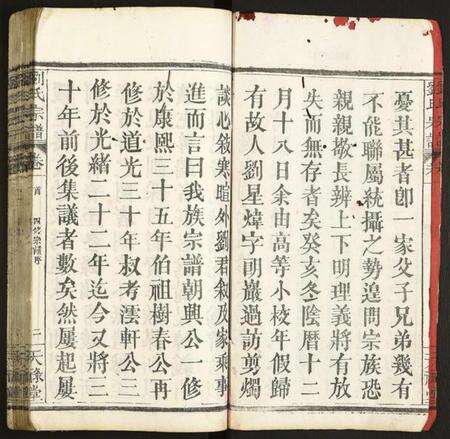 憂其甚者卽一家父子兄弟幾有
不能聯屬統攝之勢遑問宗族恐
親親敬長辨上下明理義將有放
失而無存者矣癸亥冬陰曆十二
月十八日余由高等小校年假歸
有故人劉星煒字明巖過訪剪燭
談心敘寒暄外劉君叙及家乘事
進而言曰我族宗譜朝興公一修
於康熙三十五年伯祖樹春公再
修於道光三十年叔考澐軒公三
修於光緒二十二年迄今又將三
十年前後集議者數矣然屢起屢
劉氏宗譜
卷
首
四修宗譜序
二
天祿堂